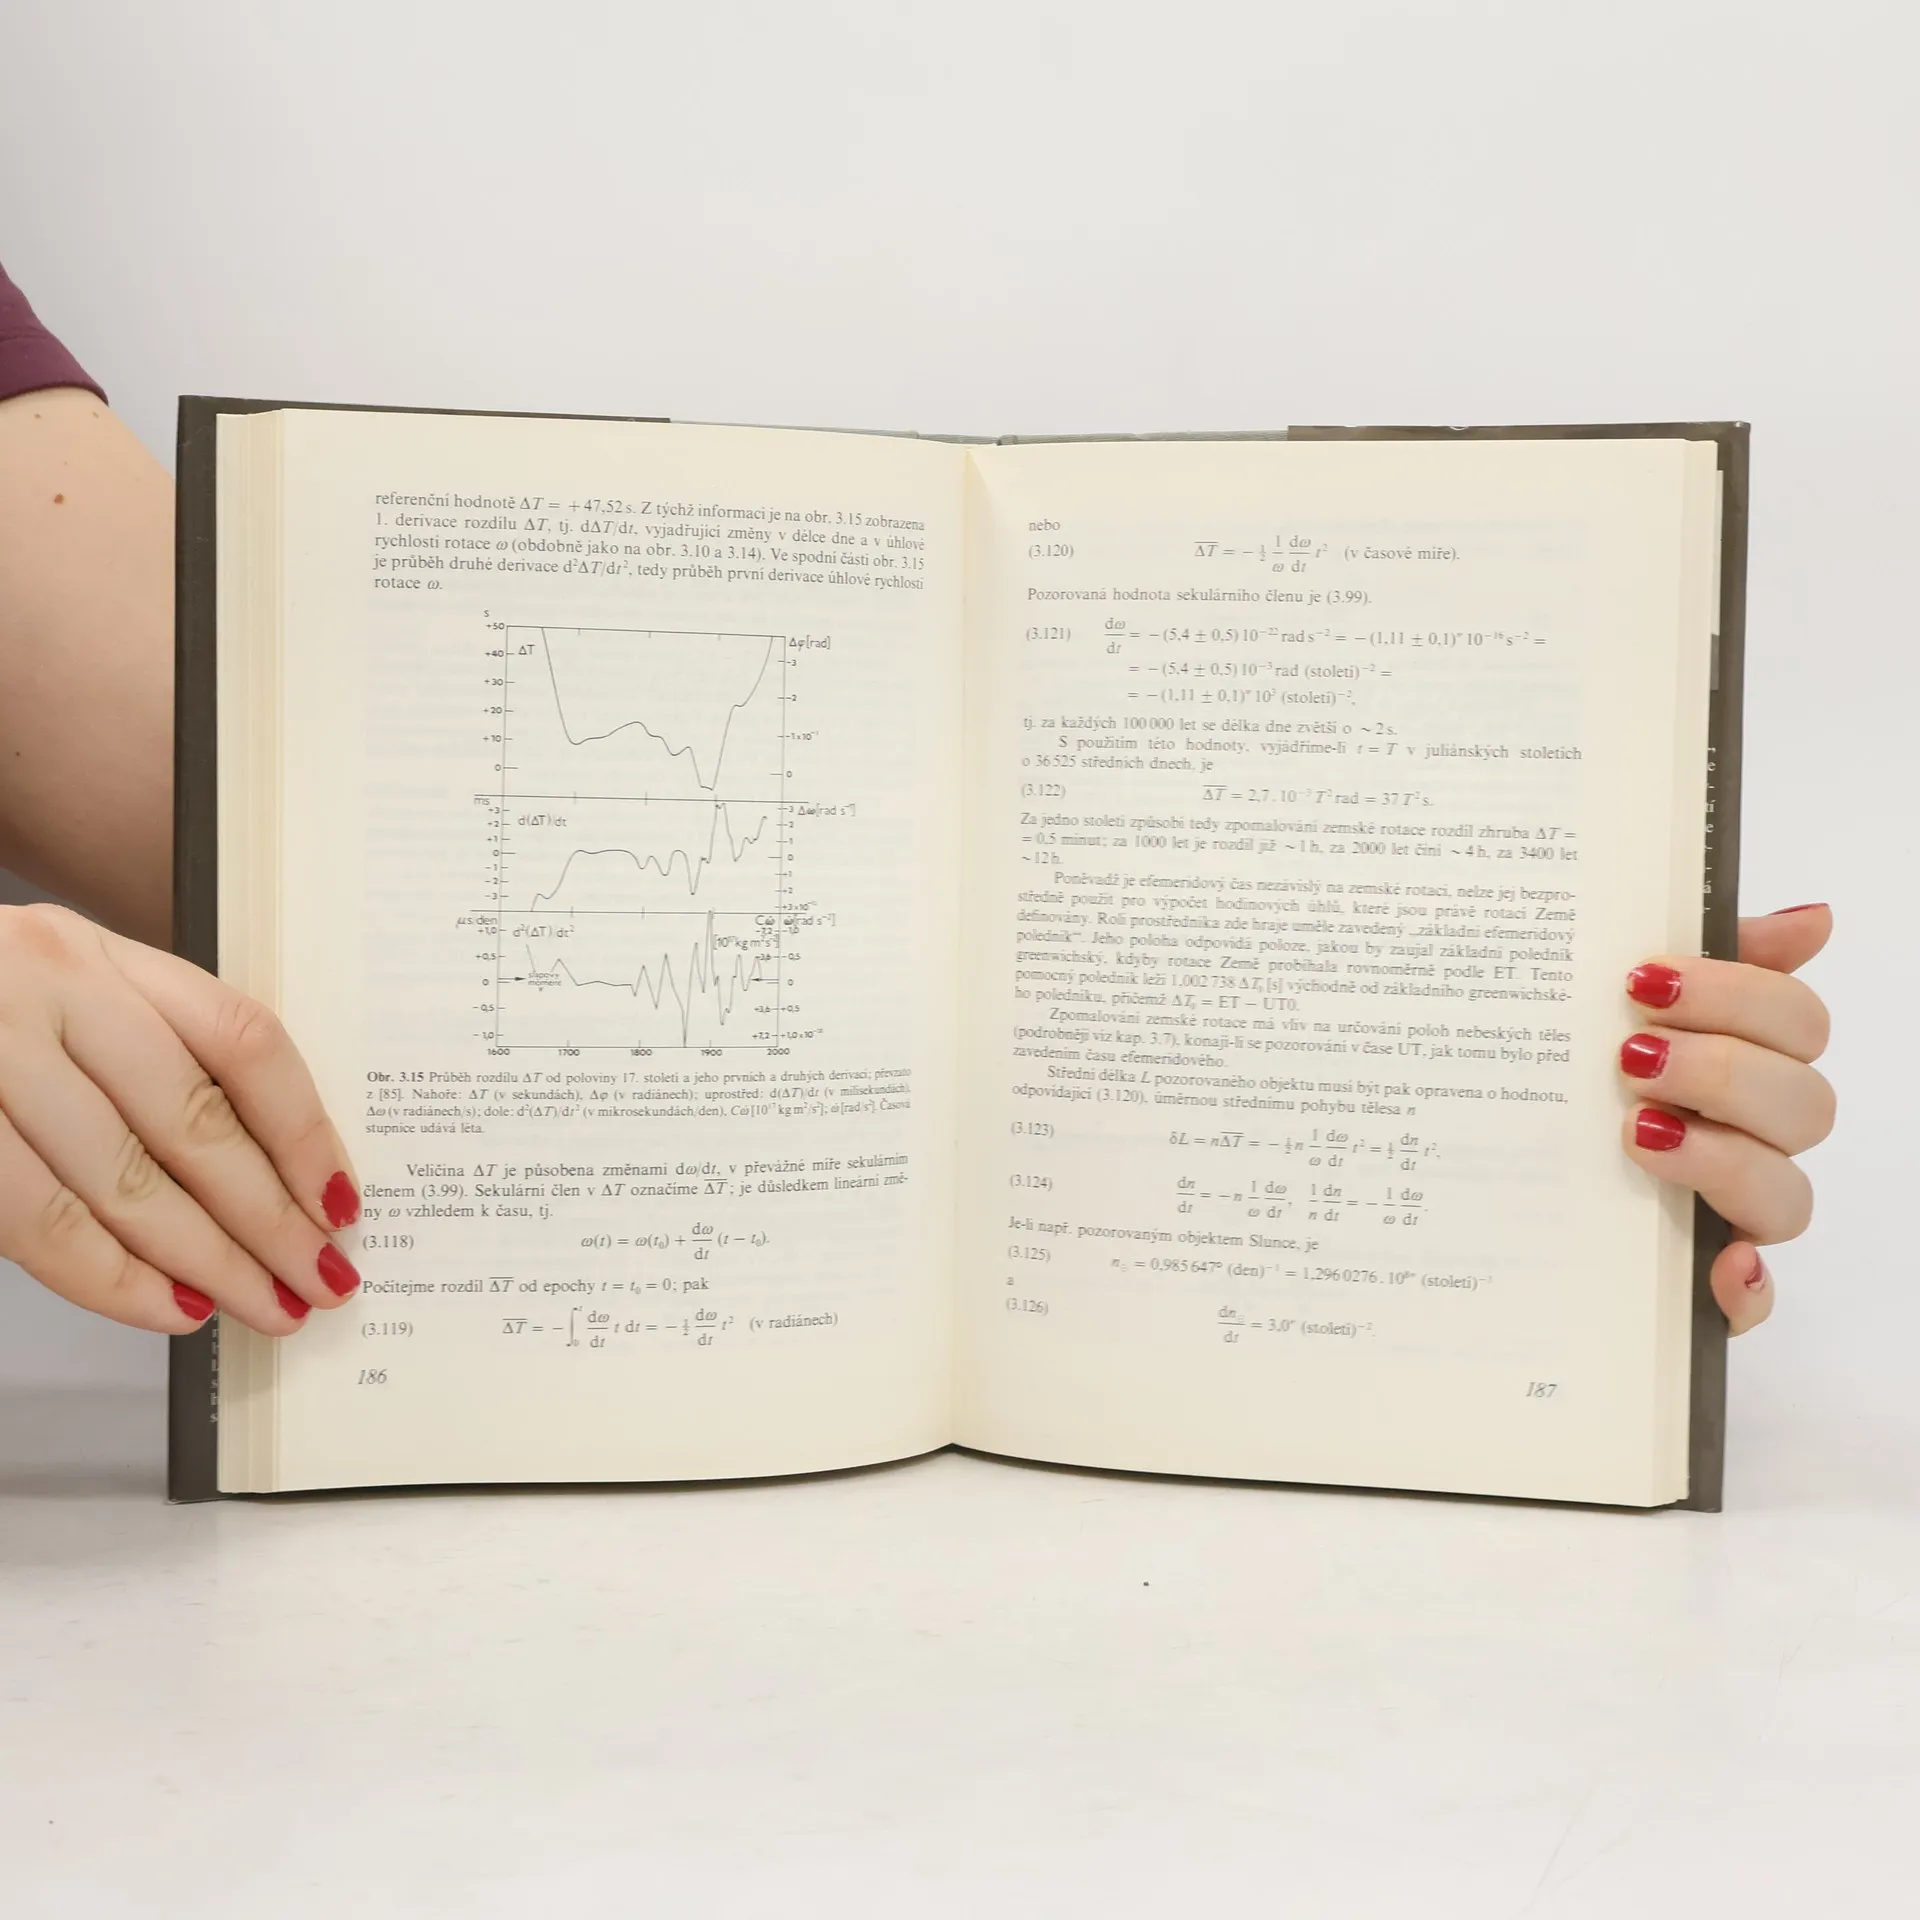 referenční hodnotě ΔT = +47,52 s. Z týchž informací je na obr. 3.15 zobrazena
1. derivace rozdílu ΔT, tj. dΔT/dt, vyjadřující změny v délce dne a v úhlové
rychlosti rotace ω (obdobně jako na obr. 3.10 a 3.14). Ve spodní části obr. 3.15
je průběh druhé derivace d²ΔT/dt², tedy průběh první derivace úhlové rychlosti
rotace ω.
s
+50
+40
+30
+20
+10
0
ΔT
Δφ[rad]
-3
-2
-1x10⁻³
0
ms
+3
+2
+1
0
-1
-2
-3
d(ΔT)/dt
-3 Δω[rad s⁻¹]
-2
-1
0
+1
+2
μs/den
+1,0
+0,5
0
-0,5
-1,0
d²(ΔT)/dt²
slapový
moment
Cω̇ ω̇[rad s⁻²]
-7,2 -1,0
-3,6 -0,5
0
+3,6 +0,5
1600 1700 1800 1900 2000
Obr. 3.15 Průběh rozdílu ΔT od poloviny 17. století a jeho prvních a druhých derivací; převzato
z [85]. Nahoře: ΔT (v sekundách), Δφ (v radiánech); uprostřed: d(ΔT)/dt (v milisekundách),
Δω (v radiánech/s); dole: d²(ΔT)/dt² (v mikrosekundách/den), Cω̇ [10¹⁷ kg m²/s²]; ω̇ [rad/s²]. Časová
stupnice udává léta.
Veličina ΔT je působena změnami dω/dt, v převážné míře sekulárním
členem (3.99). Sekulární člen v ΔT označíme \overline{ΔT}; je důsledkem lineární změ-
ny ω vzhledem k času, tj.
(3.118) ω(t) = ω(t₀) + dω/dt (t − t₀).
Počítejme rozdíl \overline{ΔT} od epochy t = t₀ = 0; pak
(3.119) \overline{ΔT} = −∫₀ᵗ dω/dt t dt = −½ dω/dt t² (v radiánech)
186
nebo
(3.120) \overline{ΔT} = −½ 1/ω dω/dt t² (v časové míře).
Pozorovaná hodnota sekulárního členu je (3.99).
(3.121) dω/dt = −(5,4 ± 0,5) 10⁻²² rad s⁻² = −(1,11 ± 0,1)″ 10⁻¹⁶ s⁻² =
= −(5,4 ± 0,5) 10⁻³ rad (století)⁻² =
= −(1,11 ± 0,1)″ 10³ (století)⁻²,
tj. za každých 100 000 let se délka dne zvětší o ~ 2 s.
S použitím této hodnoty, vyjádříme-li t = T v juliánských stoletích
o 36 525 středních dnech, je
(3.122) \overline{ΔT} = 2,7 . 10⁻³ T² rad = 37 T² s.
Za jedno století způsobí tedy zpomalování zemské rotace rozdíl zhruba ΔT =
= 0,5 minut; za 1000 let je rozdíl již ~ 1 h, za 2000 let činí ~ 4 h, za 3400 let
~ 12 h.
Poněvadž je efemeridový čas nezávislý na zemské rotaci, nelze jej bezpro-
středně použít pro výpočet hodinových úhlů, které jsou právě rotací Země
definovány. Roli prostředníka zde hraje uměle zavedený „základní efemeridový
poledník“. Jeho poloha odpovídá poloze, jakou by zaujal základní poledník
greenwichský, kdyby rotace Země probíhala rovnoměrně podle ET. Tento
pomocný poledník leží 1,002 738 ΔT₀ [s] východně od základního greenwichské-
ho poledníku, přičemž ΔT₀ = ET − UT0.
Zpomalování zemské rotace má vliv na určování poloh nebeských těles
(podrobněji viz kap. 3.7), konají-li se pozorování v čase UT, jak tomu bylo před
zavedením času efemeridového.
Střední délka L pozorovaného objektu musí být pak opravena o hodnotu,
odpovídající (3.120), úměrnou střednímu pohybu tělesa n
(3.123) δL = n\overline{ΔT} = −½ n 1/ω dω/dt t² = ½ dn/dt t²,
(3.124) dn/dt = −n 1/ω dω/dt, 1/n dn/dt = − 1/ω dω/dt.
Je-li např. pozorovaným objektem Slunce, je
(3.125) n☉ = 0,985 647° (den)⁻¹ = 1,296 0276 . 10⁸″ (století)⁻¹
a
(3.126) dn☉/dt = 3,0″ (století)⁻².
187